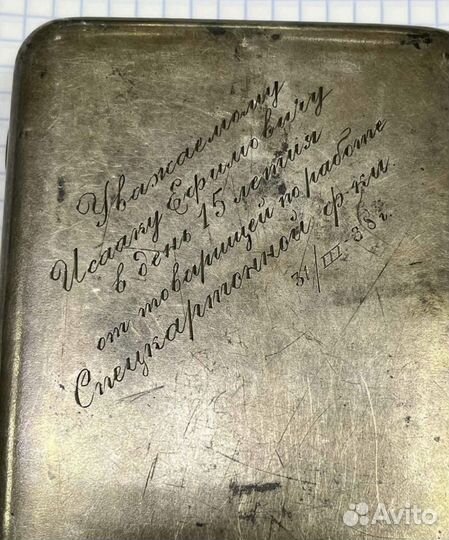 Уважаемому
Исааку Ефимовичу
в день 15 летия
от товарищей по работе
Спецкартонной ф-ки.
31/III-38 г.
Avito